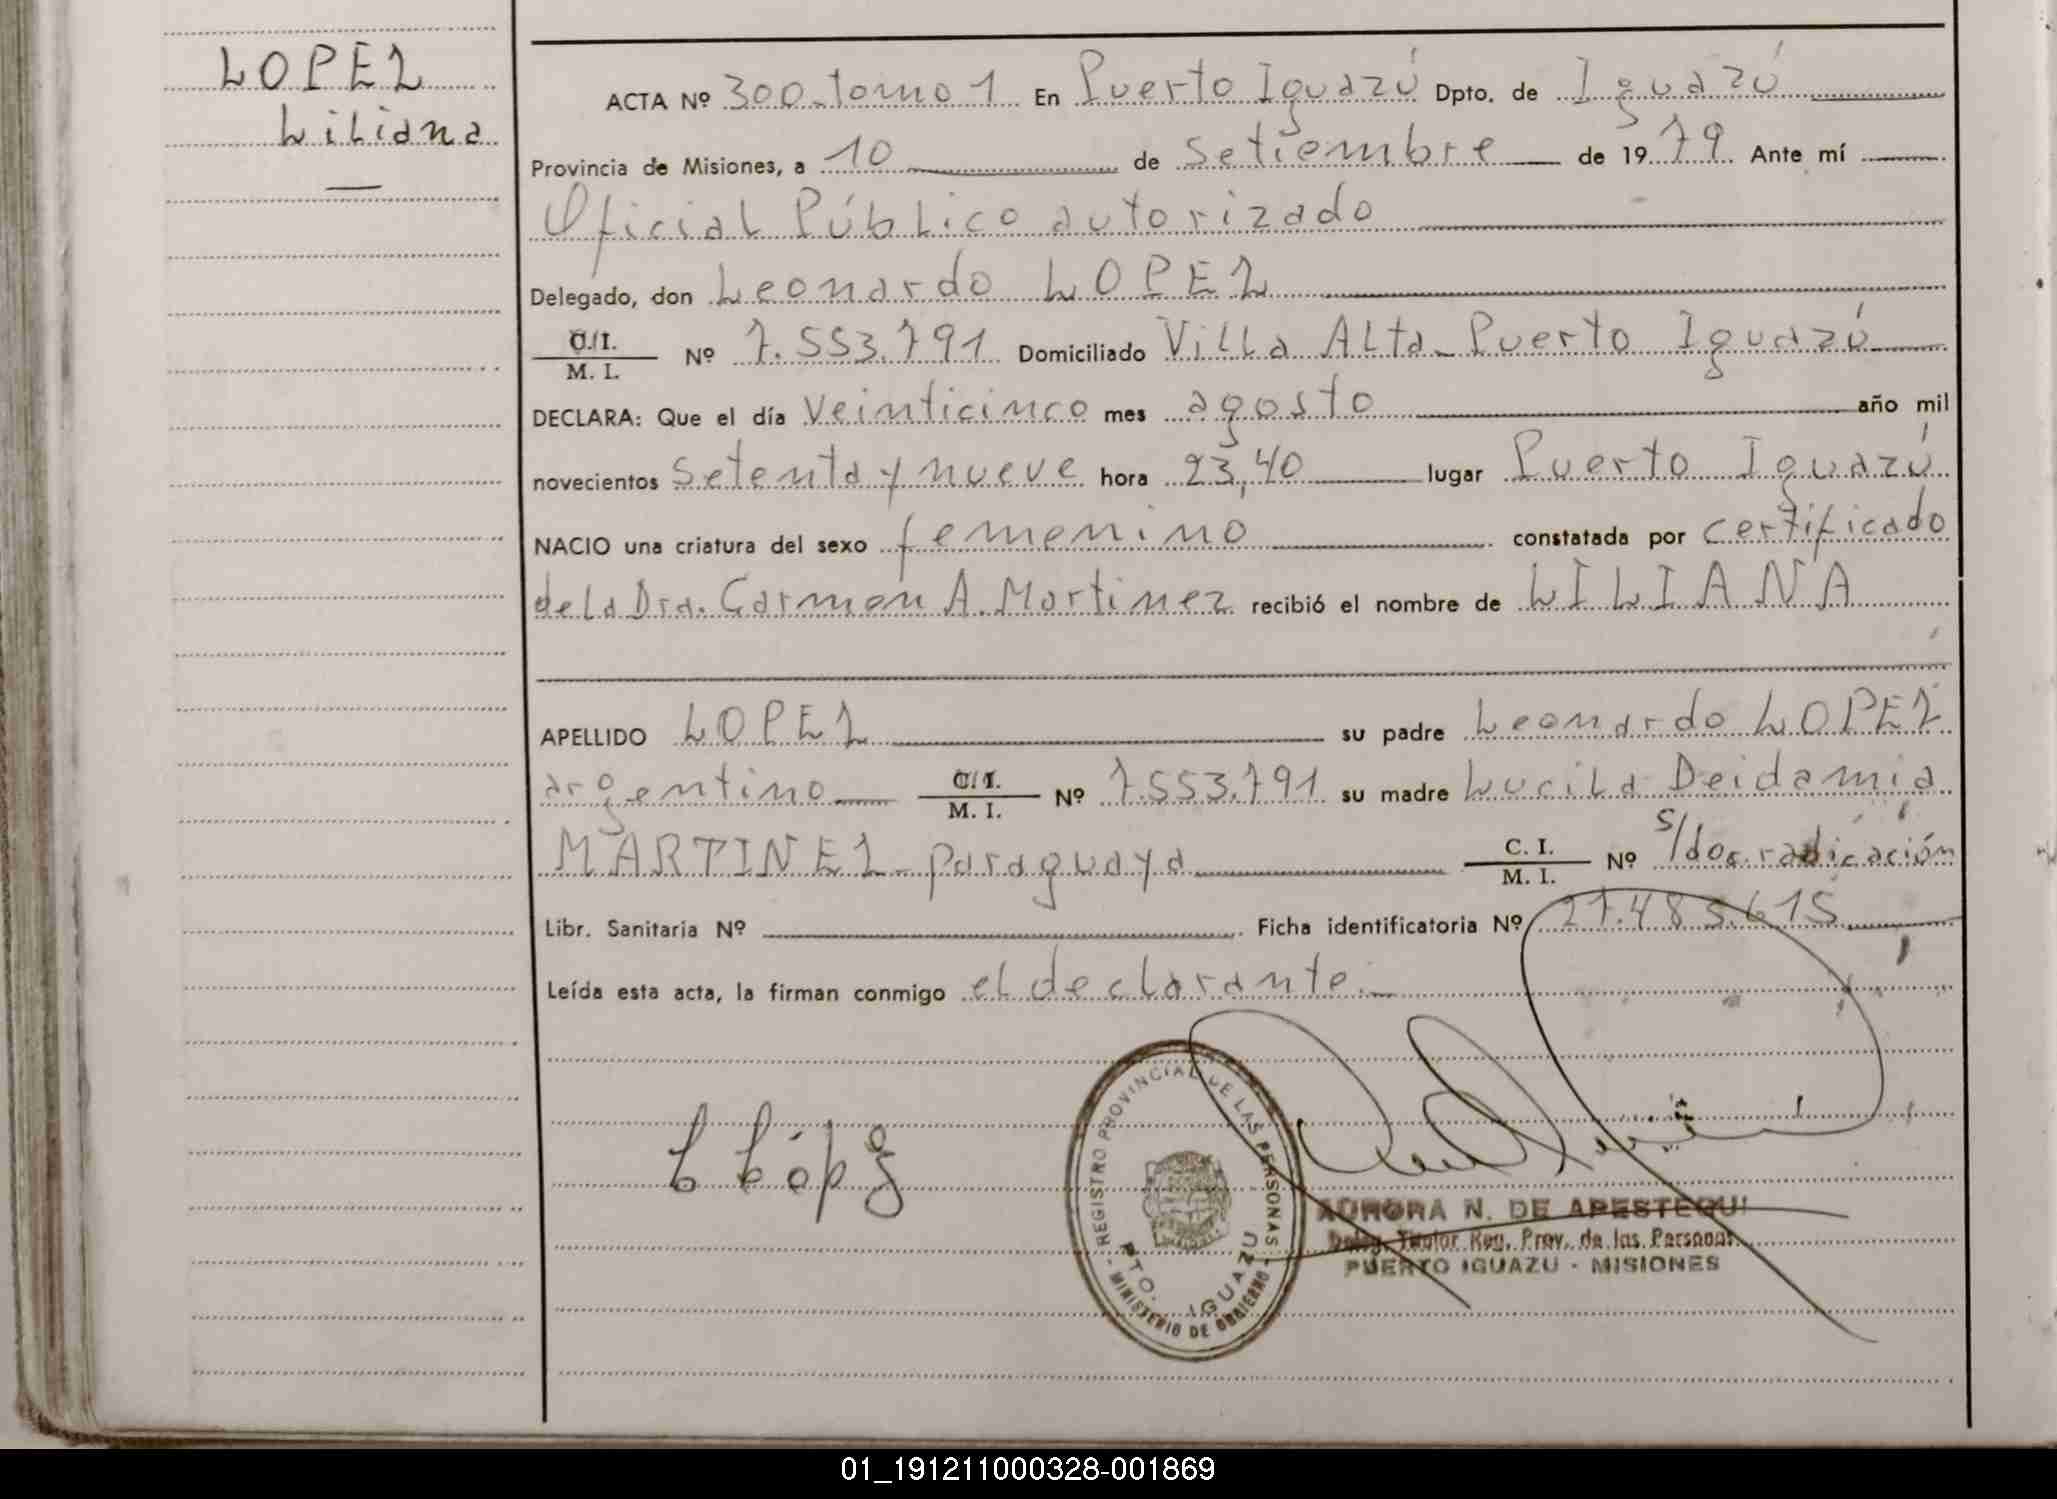 LOPEZ
Liliana
ACTA Nº 300-tomo 1 En Puerto Iguazú Dpto. de Iguazú
Provincia de Misiones, a 10 de setiembre de 1979. Ante mí
Oficial Público autorizado
Delegado, don Leonardo LOPEZ
C.I.
M. I. Nº 7.553.791 Domiciliado Villa Alta-Puerto Iguazú
DECLARA: Que el día Veinticinco mes agosto año mil
novecientos setenta y nueve hora 23,40 lugar Puerto Iguazú
NACIO una criatura del sexo femenino constatada por certificado
de la Dra. Carmen A. Martinez recibió el nombre de LILIANA
APELLIDO LOPEZ su padre Leonardo LOPEZ
argentino C.I.
M. I. Nº 7.553.791 su madre Lucila Deidamia
MARTINEZ-paraguaya C. I.
M. I. Nº s/doc. radicación
Libr. Sanitaria Nº Ficha identificatoria Nº 27.485.615
Leída esta acta, la firman conmigo el declarante.-
L López
REGISTRO PROVINCIAL DE LAS PERSONAS
PTO. IGUAZU
- MINISTERIO DE GOBIERNO -
AURORA N. DE APESTEGUI
Deleg. Titular Reg. Prov. de las Personas
PUERTO IGUAZU - MISIONES
01_191211000328-001869